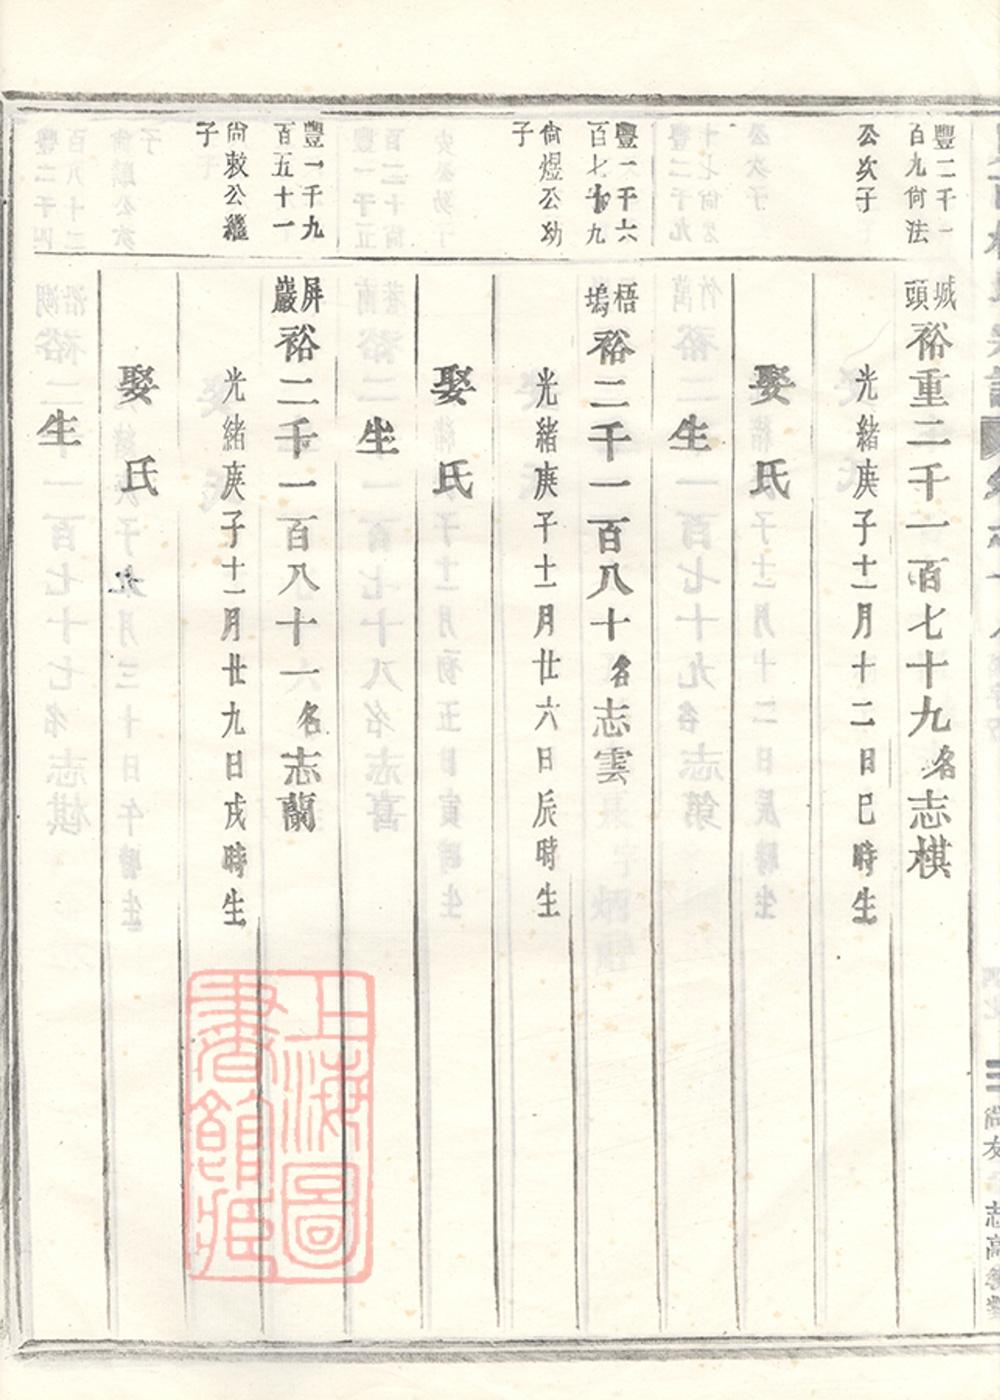 豐二千一
百九尙法
公次子
城
頭
裕重二千一百七十九名志棋
光緒庚子十一月十二日巳時生
娶 氏
生
豐一千六
百七十九
尙煜公幼
子
梧
塢
裕二千一百八十名志雲
光緒庚子十一月廿六日辰時生
娶 氏
生
豐一千九
百五十一
尙敕公繼
子
屏
巖
裕二千一百八十一名志蘭
光緒庚子十一月廿九日戌時生
娶 氏
生
上海圖
書館藏